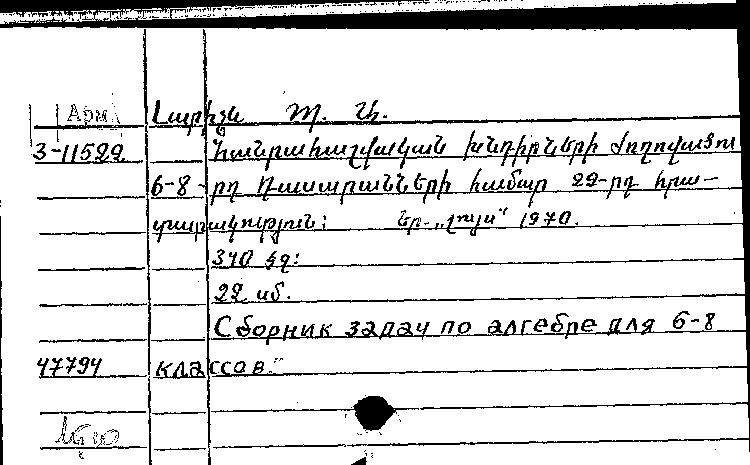 Арм Լարիչև Պ. Ա.
3-11522 Հանրահաշվական խնդիրների ժողովածու
6-8-րդ դասարանների համար 22-րդ հրա-
տարակություն: Եր., "Լույս" 1970.
340 էջ:
22 սմ.
Сборник задач по алгебре для 6-8
47794 классов."